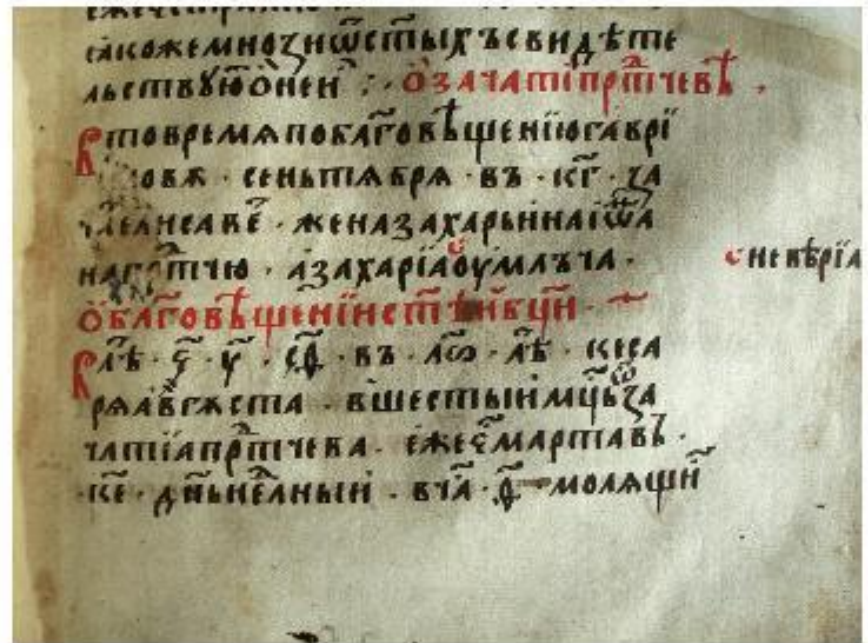 ꙗкожемноꙁиѿст҃ыхъсвидѣте
льствꙋютонеи҆ : · ѻ҆зачатїипр҃тчевѣ .
Втовремѧпобл҃говѣщенїюгаврї
иловꙋ · сеньтѧбрѧ · въ · к҃г · ꙁа
ч҃аелисаве҃ · женазахарьинаїѡ҃а
напр҃тчю · азахарїаѻ҆умлъча ·
с неверїа
Ѻ҆бл҃говѣщенїиист҃ѣи҆бц҃и ·
Влѣ҃ · ҂с҃ · у҃ · с҃д · въ · лѡ҃ · лѣ҃ · кеса
рѧа҆вгѫста · вшестыимц҃ьѿꙁа
чатїапр҃тчева · ежеес҃мартавъ ·
· к҃е · дн҃ьнел҃ныи · вча҃ · д҃ молѧщи҃